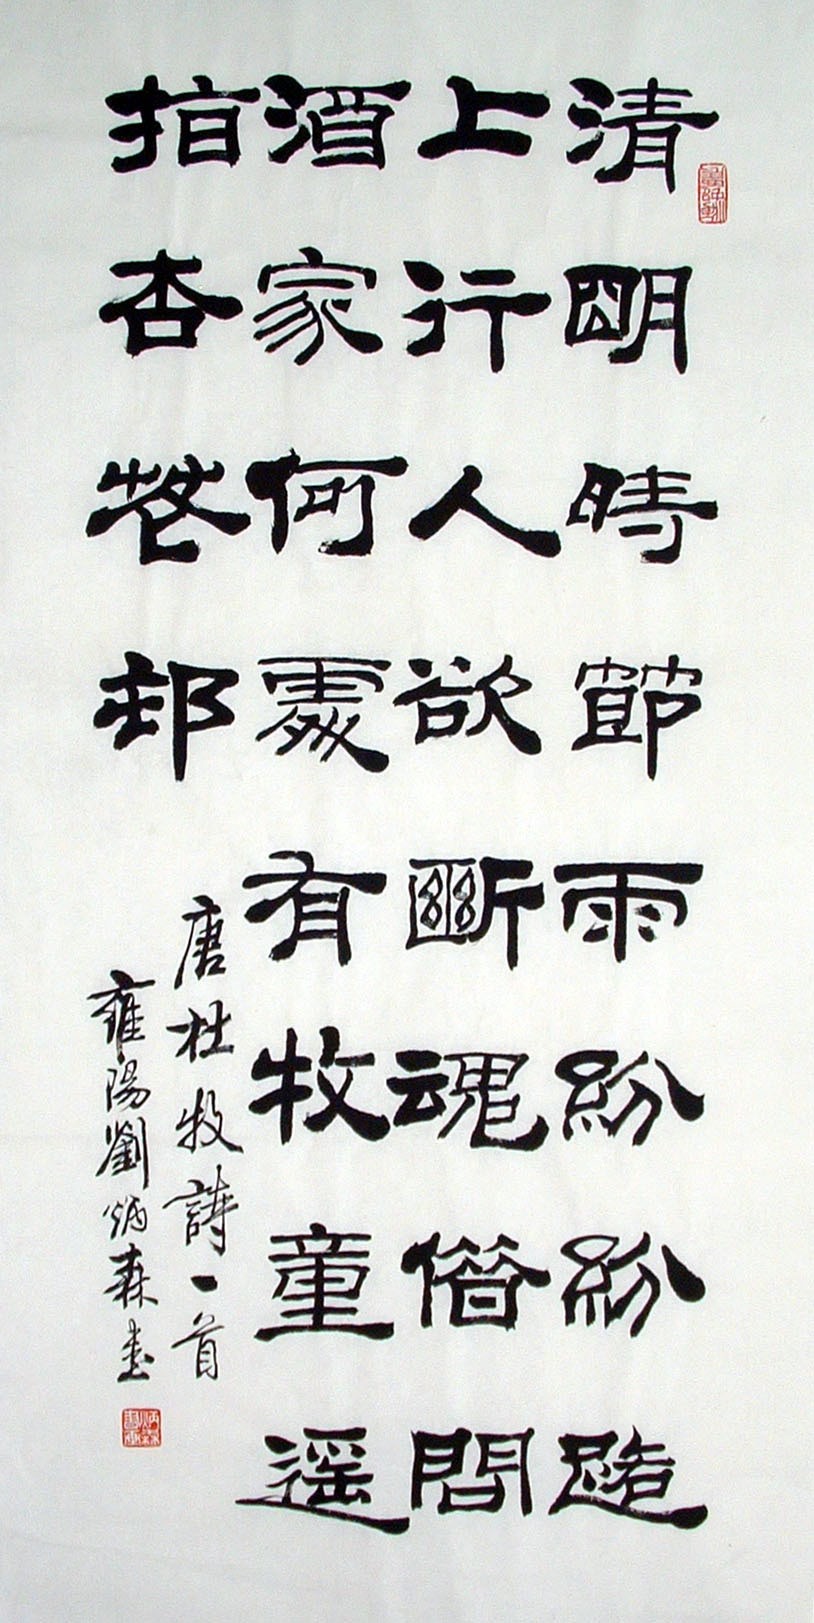 清明時節雨紛紛路
上行人欲斷魂借問
酒家何處有牧童遥
指杏花邨
唐杜牧詩一首
雍陽劉炳森書